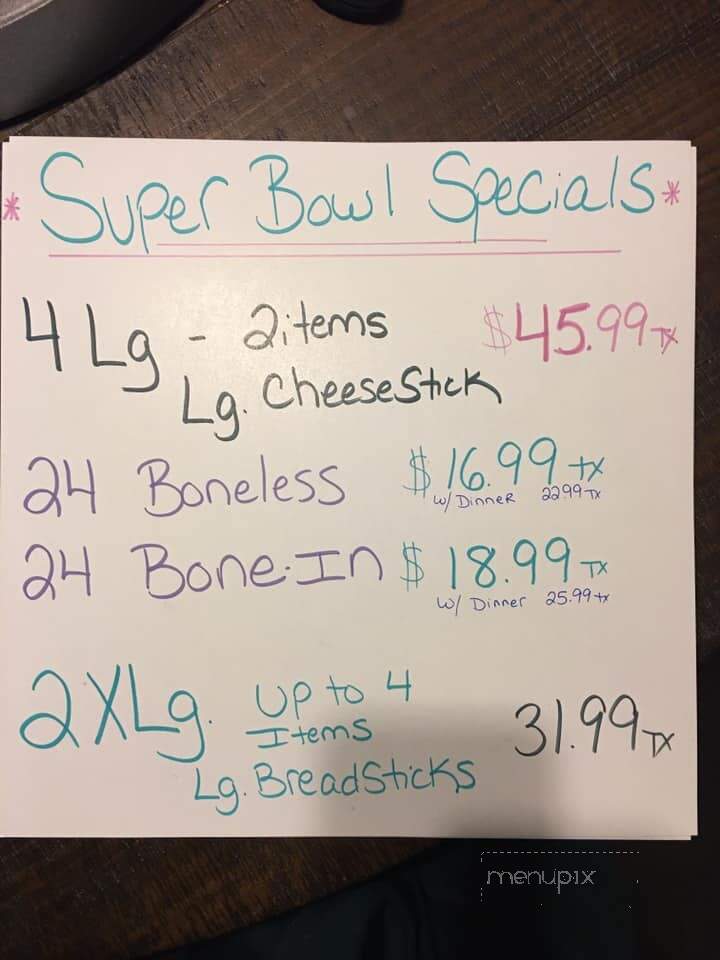 * Super Bowl Specials *
4 Lg - 2 items $45.99 TX
Lg. CheeseStick
24 Boneless $16.99 +x
w/ Dinner 22.99 TX
24 Bone-In $18.99 TX
w/ Dinner 25.99 +x
2 XLg. Up to 4 Items 31.99 TX
Lg. BreadSticks
menupix